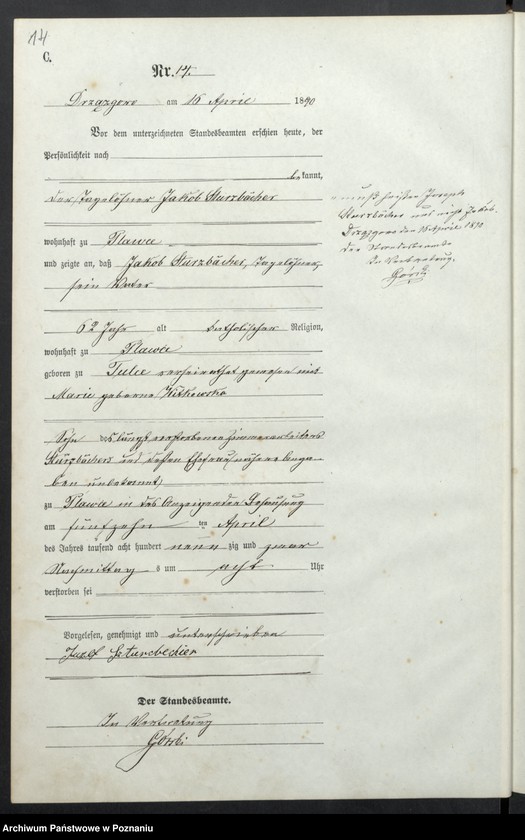 14
C.
Nr. 14.
Drzazgowo am 16 April 1890
Vor dem unterzeichneten Standesbeamten erschien heute, der
Persönlichkeit nach
bekannt,
der Tagelöhner Jakob Sturzbächer
wohnhaft zu Plawce
und zeigte an, daß Jakob Sturzbächer, Tagelöhner,
sein Vater
62 Jahr alt katholischer Religion,
wohnhaft zu Plawce
geboren zu Tulce verheirathet gewesen mit
Marie geborene Witkowska
Sohn des längst verstorbenen Zimmerarbeiters
Sturzbächers und dessen Ehefrau nähere Anga-
ben unbekannt,
zu Plawce in des Anzeigenden Behausung
am fünfzehn ten April
des Jahres tausend acht hundert neun zig und zwar
Nachmittag s um acht Uhr
verstorben sei
Vorgelesen, genehmigt und unterschrieben
Jozef Szturcbecher
Der Standesbeamte.
In Vertretung
Görski
muß heißen Joseph
Sturzbächer und nicht Jakob.
Drzazgowo den 16 April 1890
Der Standesbeamte
In Vertretung.
Archiwum Państwowe w Poznaniu